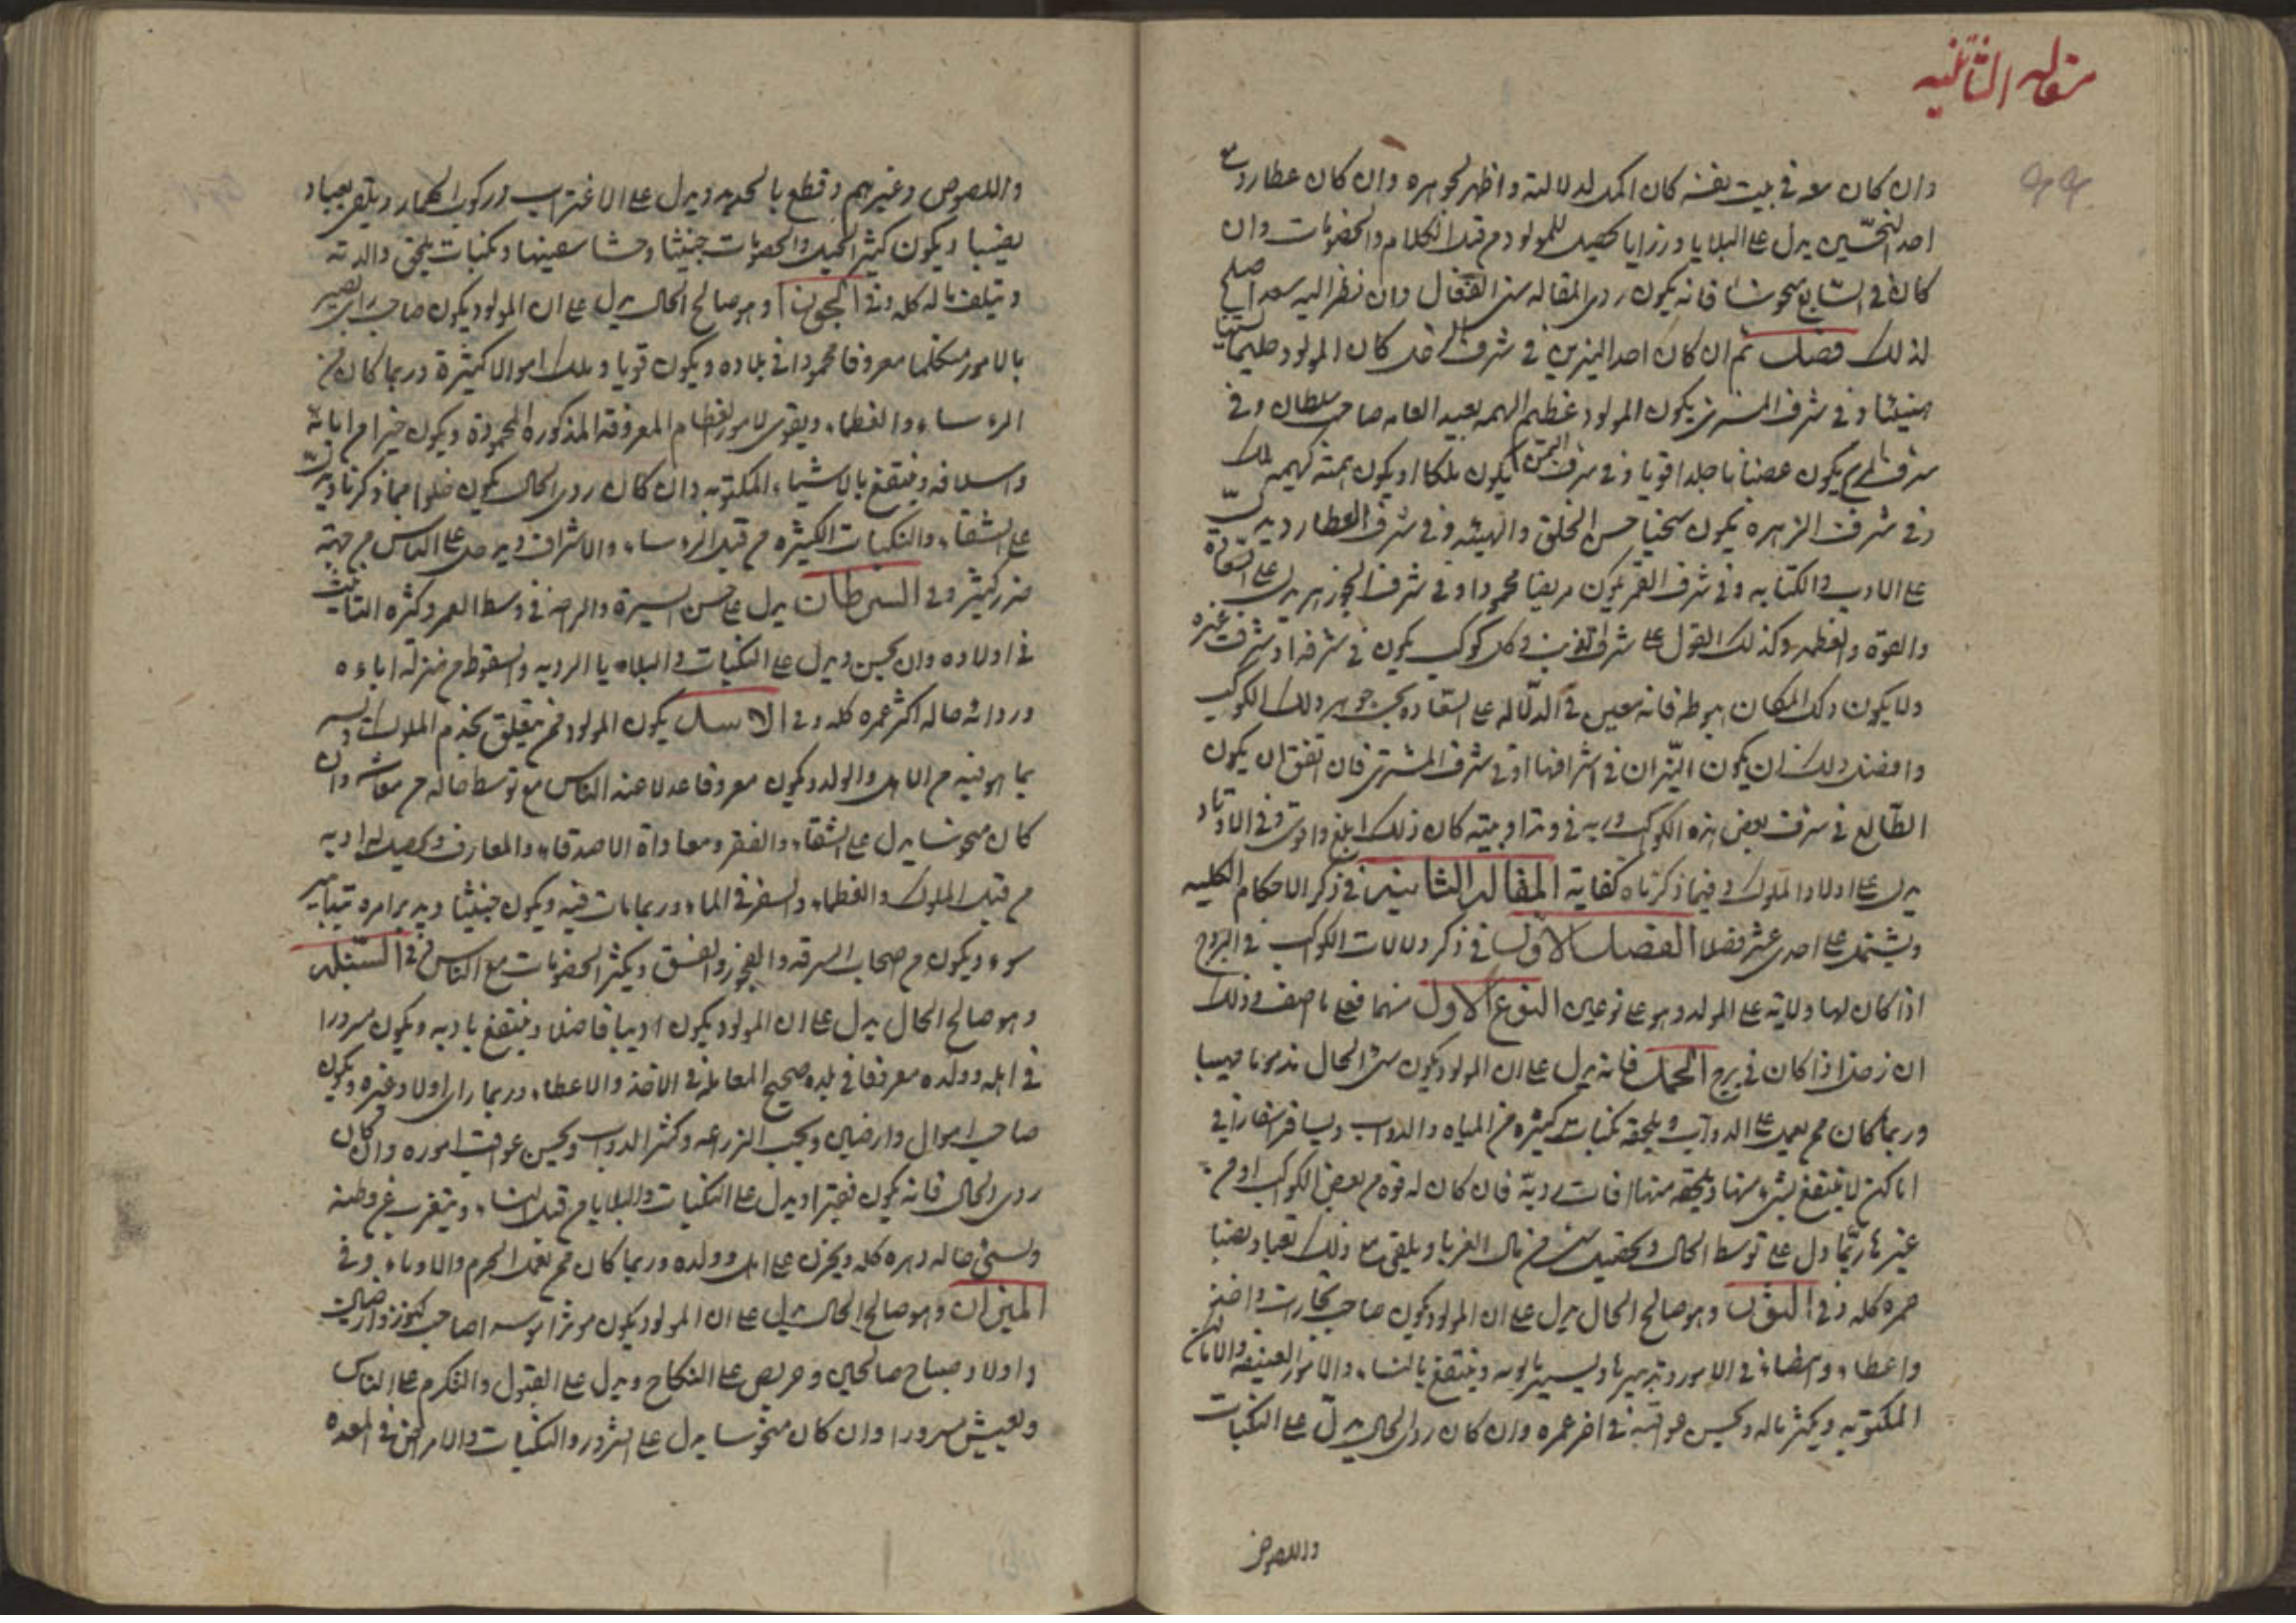 مقاله الثانيه
وان كان معه في بيت نفسه كان اكمل لدلالته واظهر لجوهره وان كان عطارد مع
احد النحسين يدل على البلايا ورزايا تحصيل للمولود من قبل الكلام والخصومات وان
كان في السابع منحوسا فانه يكون ردى المقاله سئ الفعال وان نظر اليه سعد اصلح
لذلك فصل ثم ان كان احد النيرين في شرف زحل كان المولود حليما
وفي شرف المشترى يكون المولود عظيم الهمه بعيد الغايه صاحب سلطان وفي
شرف المريخ يكون غضبانا جلدا قويا وفي شرف الشمس يكون ملكا او يكون همته كهمه ملك
وفي شرف الزهره يكون سخيا حسن الخلق والهيئه وفي شرف العطارد يدل
على الادب والكتابه وفي شرف القمر يكون محمودا وفي شرف الجوزهر يدل على السعاده
والقوة والعظمه وكذلك القول على كل كوكب يكون في شرفه او شرف غيره
ولا يكون ذلك المكان هبوطه فانه معين في الدلاله على السعاده بحسب جوهر ذلك الكوكب
وافضل ذلك ان يكون النيران في اشرافهما او في شرف المشترى فان اتفق ان يكون
الطالع في شرف بعض هذه الكواكب وربه في وتد او بيته كان ذلك ابلغ واقوى وفي الاوتاد
يدل على اولاد الملوك وفيما ذكرناه كفاية المقاله الثانيه في ذكر الاحكام الكليه
ويشتمل على احدى عشر فصلا الفصل الاول في ذكر دلالات الكواكب في البروج
اذا كان لها ولاية على المولد وهو على نوعين النوع الاول منهما فعلى ما اصف وذلك
ان زحل اذا كان في برج الحمل فانه يدل على ان المولود يكون سئ الحال مذموما
وربما كان ممن يعمل على الدواب ويلحقه نكبات كثيره من المياه والدواب ويسافر اسفارا في
اماكن لا ينتفع بشئ منها ويلحقه منها افات رديه فان كان له قوة من بعض الكواكب او من
غيرها ربما دل على توسط الحال من مال الغربا ويلقى مع ذلك تعبا ونصبا
عمره كله وفي الثور وهو صالح الحال يدل على ان المولود يكون صاحب تجارات واخذ
واعطاء وامضاء في الامور وتدبيرها وينتفع بالنساء والامور العتيقه والاماكن
المكتومه ويكثر ماله ويحسن عواقبه في اخر عمره وان كان ردى الحال يدل على النكبات
واللصوص
واللصوص وغيرهم وقطع بالحديد ويدل على الاغتراب وركوب البحار ويلقى تعبا و
نصبا ويكون كثير الحيل والخصومات خبيثا ونكبات يلحق والدته
ويتلف ماله كله وفي الجوزا وهو صالح الحال يدل على ان المولود يكون صاحب راى بصير
بالامور متكلما معروفا محمودا في بلاده ويكون قويا ويملك اموالا كثيرة وربما كان من
الروساء والعظماء ويقوى لامور العظام المعروفة المذكورة المحمودة ويكون خيرا من ابائه
واسلافه وينتفع بالاشياء المكتومه وان كان ردى الحال يكون خلوا مما ذكرنا ويدل
على الشقاء والنكبات الكثيره من قبل الروساء والاشراف ويدخل على الناس من جهته
ضرر كثير وفي السرطان يدل على حسن السيرة والراحة في وسط العمر وكثره التاسف
في اولاده وان نحس يدل على النكبات والبلايا الرديه والسقوط من منزله اباءه
ورداءة حاله اكثر عمره كله وفي الاسد يكون المولود ممن يتعلق بخدم الملوك ويسر
بما هو فيه من الاهل والولد ويكون معروفا عدلا عند الناس مع توسط حاله من معاشه وان
كان منحوسا يدل على الشقاء والفقر ومعاداة الاصدقاء والمعارف ويحصل له اديه
من قبل الملوك والعظماء والسفر في الماء وربما مات فيه ويكون خبيثا ويدبر امره بتدابير
سوء ويكون من صحاب السرقه والفجور والفسق ويكثر الخصومات مع الناس وفي السنبله
وهو صالح الحال يدل على ان المولود يكون اديبا فاضلا وينتفع بادبه ويكون مسرورا
في اهله وولده معروفا في بلده صحيح المعامله في الاخذ والاعطاء وربما راى اولاد غيره ويكون
صاحب اموال وارضين ويحب الزراعه وكثر الدواب ويحسن عواقب اموره وان كان
ردى الحال فانه يكون فقيرا ويدل على النكبات والبلايا من قبل النساء ويتغرب عن وطنه
ويسئ حاله دهره كله ويحزن على اهله وولده وربما كان ممن يعمل الجرم وفي
الميزان وهو صالح الحال يدل على ان المولود يكون موثرا صاحب كنوز وارضين
واولاد صباح صالحين وحريص على النكاح ويدل على القبول والتكرم على الناس
ويعيش مسرورا وان كان منحوسا يدل على الشرور والنكبات والامراض في المعده